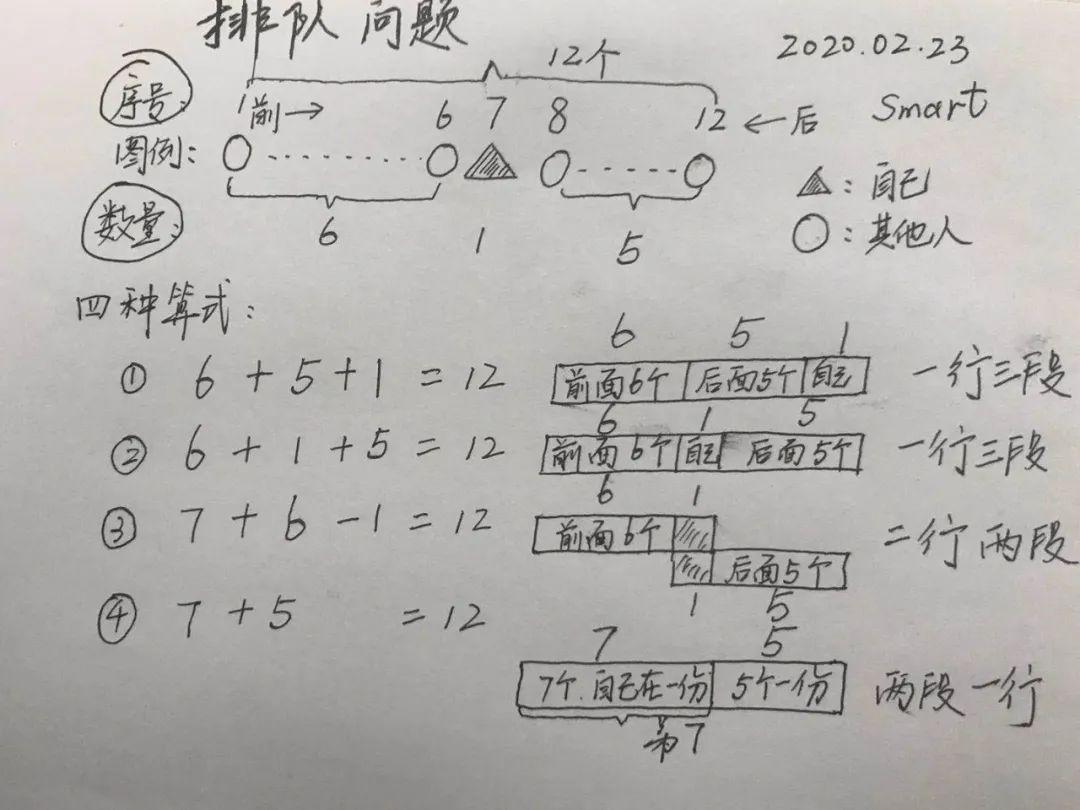 排队问题
2020.02.23
12个
序号: 1 前→ 6 7 8 12 ←后 Smart
图例:
▲: 自己
数量: 6 1 5
○: 其他人
四种算式:
6 5 1
① 6+5+1=12 前面6个 后面5个 自己 一行三段
6 1 5
② 6+1+5=12 前面6个 自己 后面5个 一行三段
6 1
③ 7+6-1=12 前面6个 二行两段
后面5个
1 5
④ 7+5 =12
7 5
7个.自己在一份 5个一份 两段一行
为7